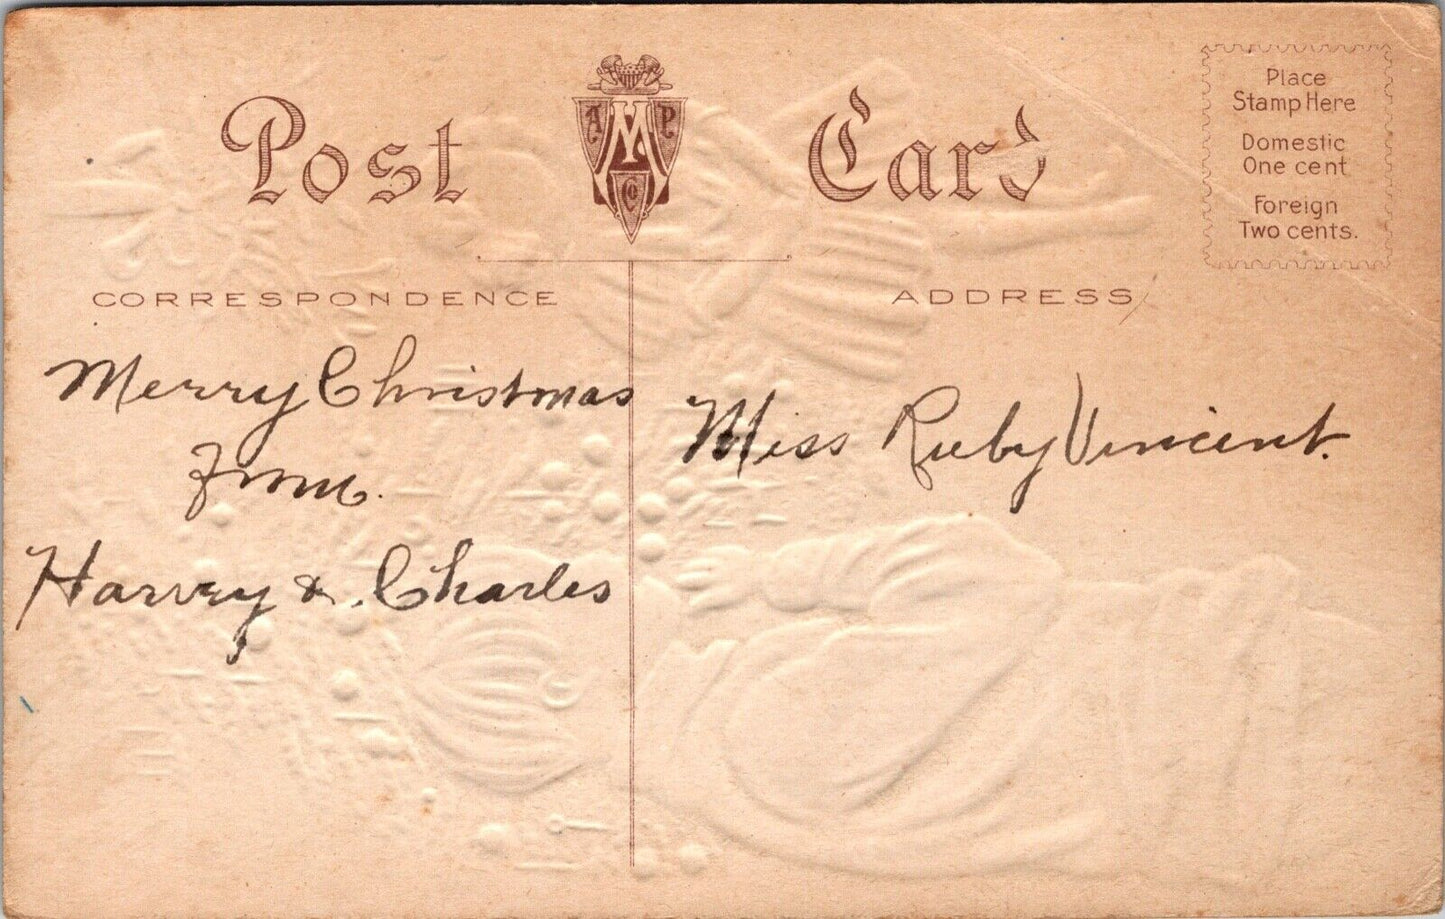 Post Card
A M P
Co
Place
Stamp Here
Domestic
One cent
Foreign
Two cents.
CORRESPONDENCE
ADDRESS
Merry Christmas
from.
Harvey &. Charles
Miss Ruby Vincent.